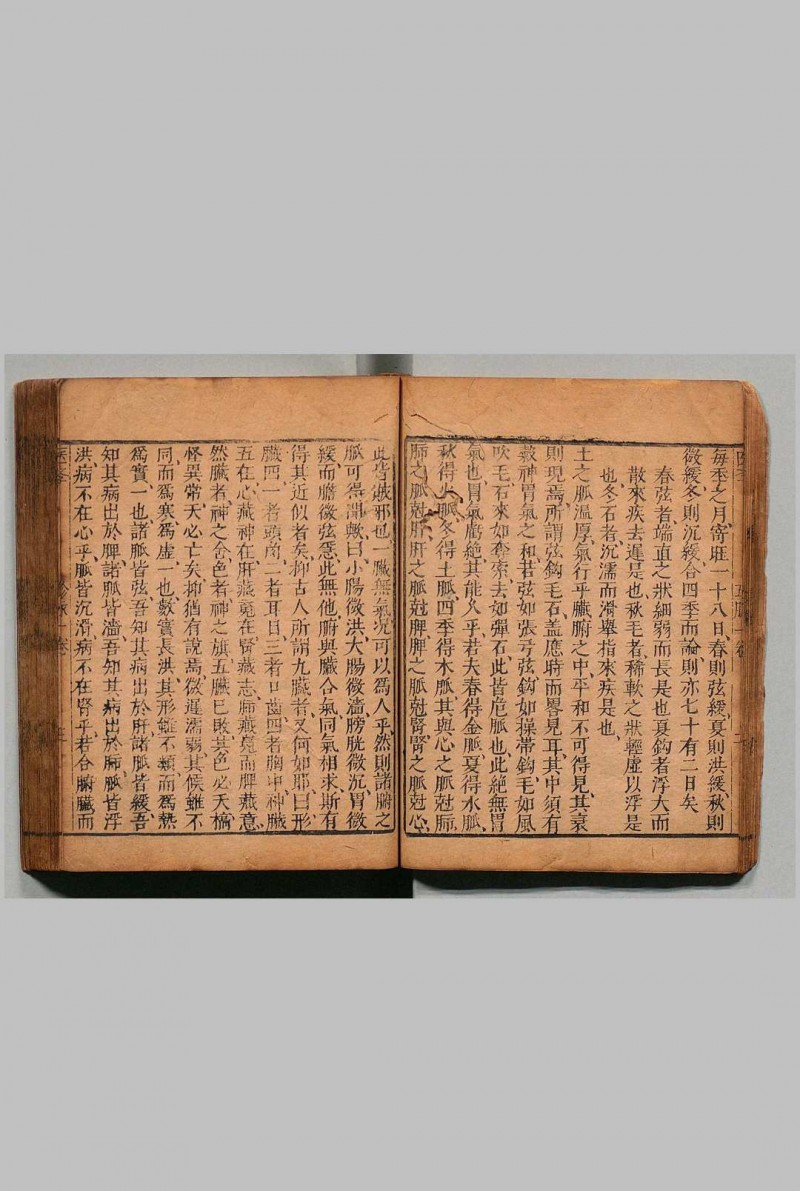 每季之月、寄旺一十八日、春則弦緩、夏則洪緩、秋則
微緩、冬則沉緩、合四季而論、則亦七十有二日矣、
春弦者、端直之狀、細弱而長是也、夏鈎者、浮大而
散、來疾去遲是也、秋毛者、稀軟之狀、輕虛以浮是
也、冬石者、沉濡而滑、舉指來疾是也、
土之脈溫厚、氣行乎臟腑之中、平和不可得見、其衰
則現焉、所謂弦鈎毛石、蓋應時而畧見耳、其中須有
穀神胃氣之和、若弦如張弓弦、鈎如操帶鈎、毛如風
吹毛、石來如奪索、去如彈石、此皆危脈也、此絕無胃
氣也、胃氣旣絕、其能久乎、若夫春得金脈、夏得水脈、
秋得火脈、冬得土脈、四季得木脈、其與心之脈尅肺、
肺之脈尅肝、肝之脈尅脾、脾之脈尅腎、腎之脈尅心、
此皆賊邪也、一臟無氣、况可以爲人乎、然則諸腑之
脈可得聞歟、曰小腸微洪、大腸微濇、膀胱微沉、胃微
緩、而膽微弦焉、此無他、腑與臟合、氣同氣相求、斯有
得其近似者矣、抑古人所謂九臟者、又何如耶、曰形
臟四、一者頭角、二者耳目、三者口齒、四者胸中、神臟
五、在心藏神、在肝藏䰟、在腎藏志、肺藏魄、而脾藏意、
然臟者神之舍、色者神之旗、五臟已敗、其色必夭槁
怪異常、夭必亡矣、抑猶有說焉、微遲濡弱、其候雖不
同、而爲寒爲虛一也、數實長洪、其形雖不類、而爲熱
爲實一也、諸脈皆弦、吾知其病出於肝、諸脈皆緩、吾
知其病出於脾、諸脈皆濇、吾知其病出於肺、脈皆浮
洪、病不在心乎、脈皆沉滑、病不在腎乎、若合腑臟而